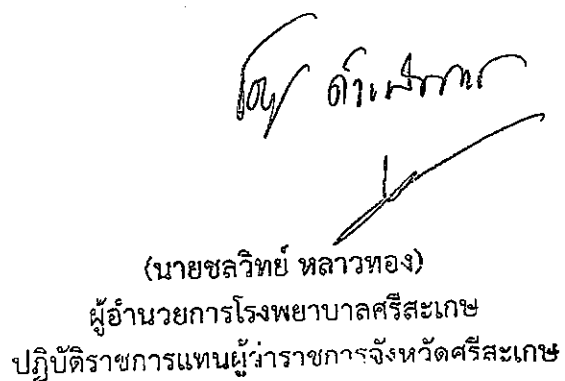 ดำเนินการ
(นายชลวิทย์ หลาวทอง)
ผู้อำนวยการโรงพยาบาลศรีสะเกษ
ปฏิบัติราชการแทนผู้ว่าราชการจังหวัดศรีสะเกษ